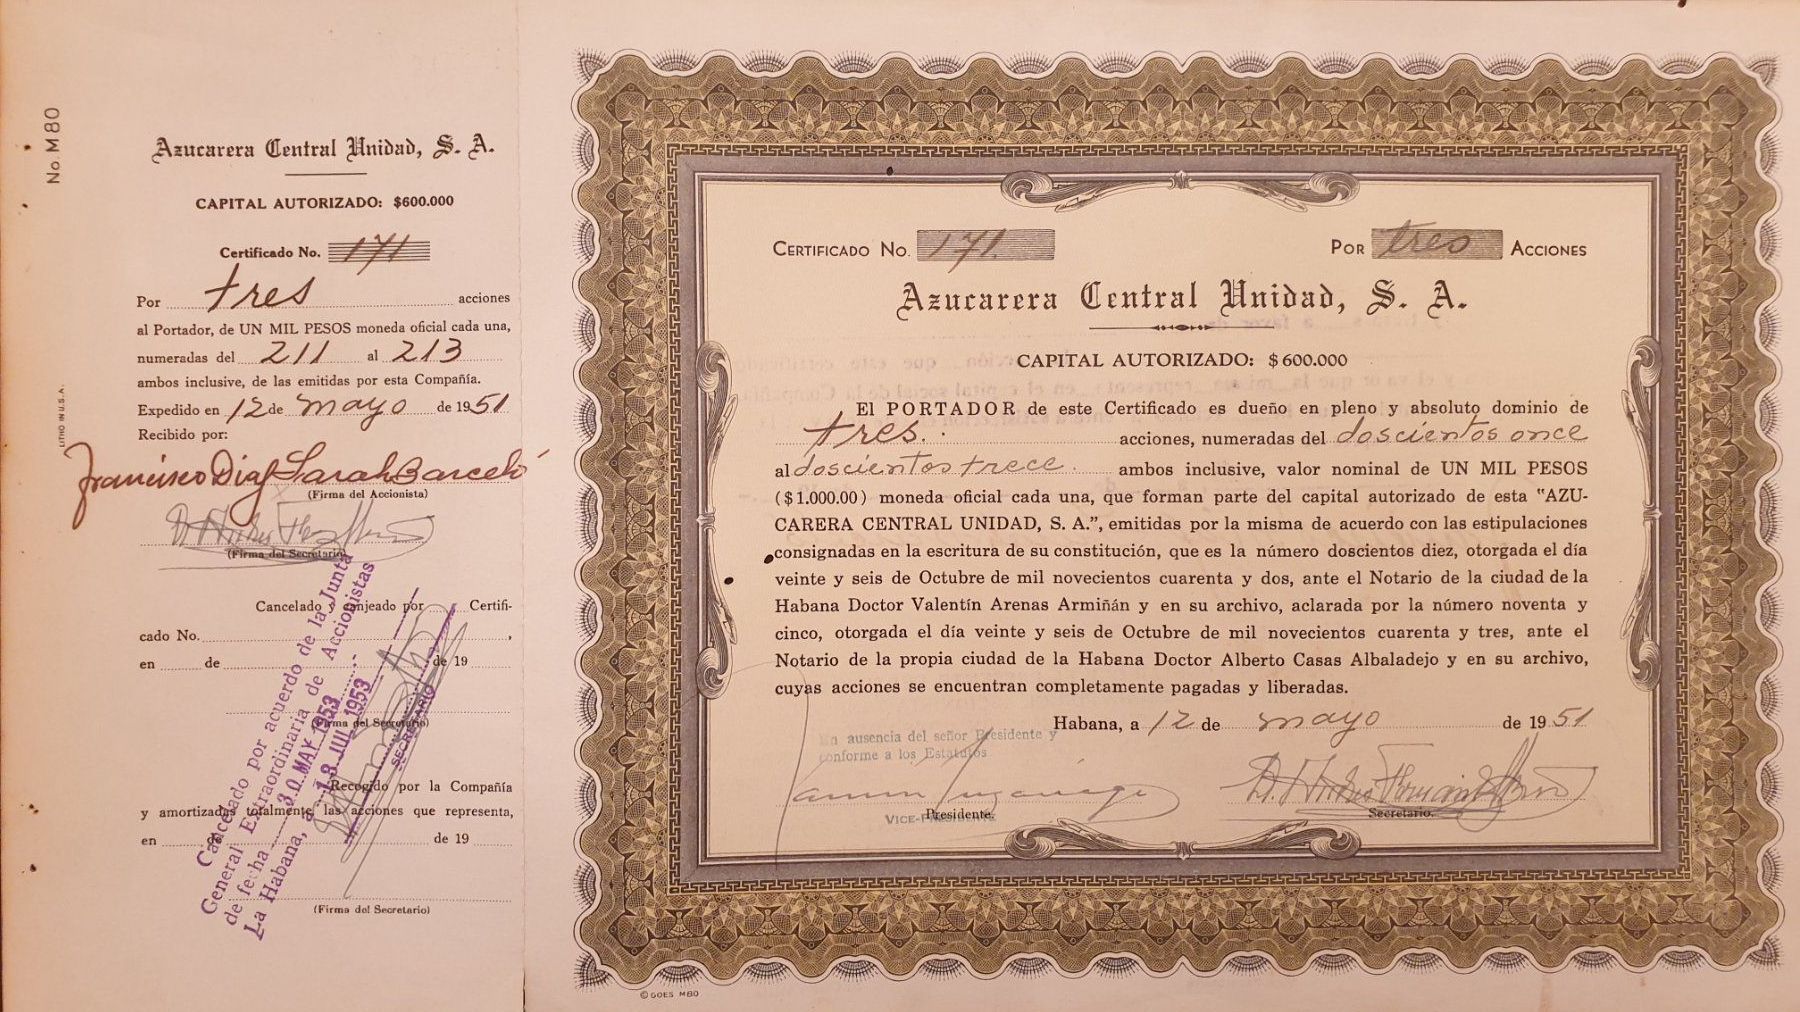 No M 80
LITHO IN U.S.A.
Azucarera Central Unidad, S. A.
CAPITAL AUTORIZADO: $600.000
Certificado No. 171
Por tres acciones
al Portador, de UN MIL PESOS moneda oficial cada una,
numeradas del 211 al 213
ambos inclusive, de las emitidas por esta Compañía.
Expedido en 12 de mayo de 1951
Recibido por:
Francisco Díaz Sarah Barceló
(Firma del Accionista)
(Firma del Secretario)
Cancelado y canjeado por Certifi-
cado No. ,
en de de 19
(Firma del Secretario)
Recogido por la Compañía
y amortizadas totalmente las acciones que representa,
en de 19
(Firma del Secretario)
Cancelado por acuerdo de la Junta
General Extraordinaria de Accionistas
de fecha 30 MAY 1953
La Habana, a 13 JUL 1953
SECRETARIO
CERTIFICADO No. 171.
POR tres ACCIONES
Azucarera Central Unidad, S. A.
CAPITAL AUTORIZADO: $600.000
El PORTADOR de este Certificado es dueño en pleno y absoluto dominio de
tres. acciones, numeradas del doscientos once
al doscientos trece. ambos inclusive, valor nominal de UN MIL PESOS
($1.000.00) moneda oficial cada una, que forman parte del capital autorizado de esta "AZU-
CARERA CENTRAL UNIDAD, S. A.", emitidas por la misma de acuerdo con las estipulaciones
consignadas en la escritura de su constitución, que es la número doscientos diez, otorgada el día
veinte y seis de Octubre de mil novecientos cuarenta y dos, ante el Notario de la ciudad de la
Habana Doctor Valentín Arenas Armiñán y en su archivo, aclarada por la número noventa y
cinco, otorgada el día veinte y seis de Octubre de mil novecientos cuarenta y tres, ante el
Notario de la propia ciudad de la Habana Doctor Alberto Casas Albaladejo y en su archivo,
cuyas acciones se encuentran completamente pagadas y liberadas.
Habana, a 12 de mayo de 1951
En ausencia del señor Presidente y
conforme a los Estatutos
Presidente.
VICE-PRESIDENTE
Secretario.
© GOES M80